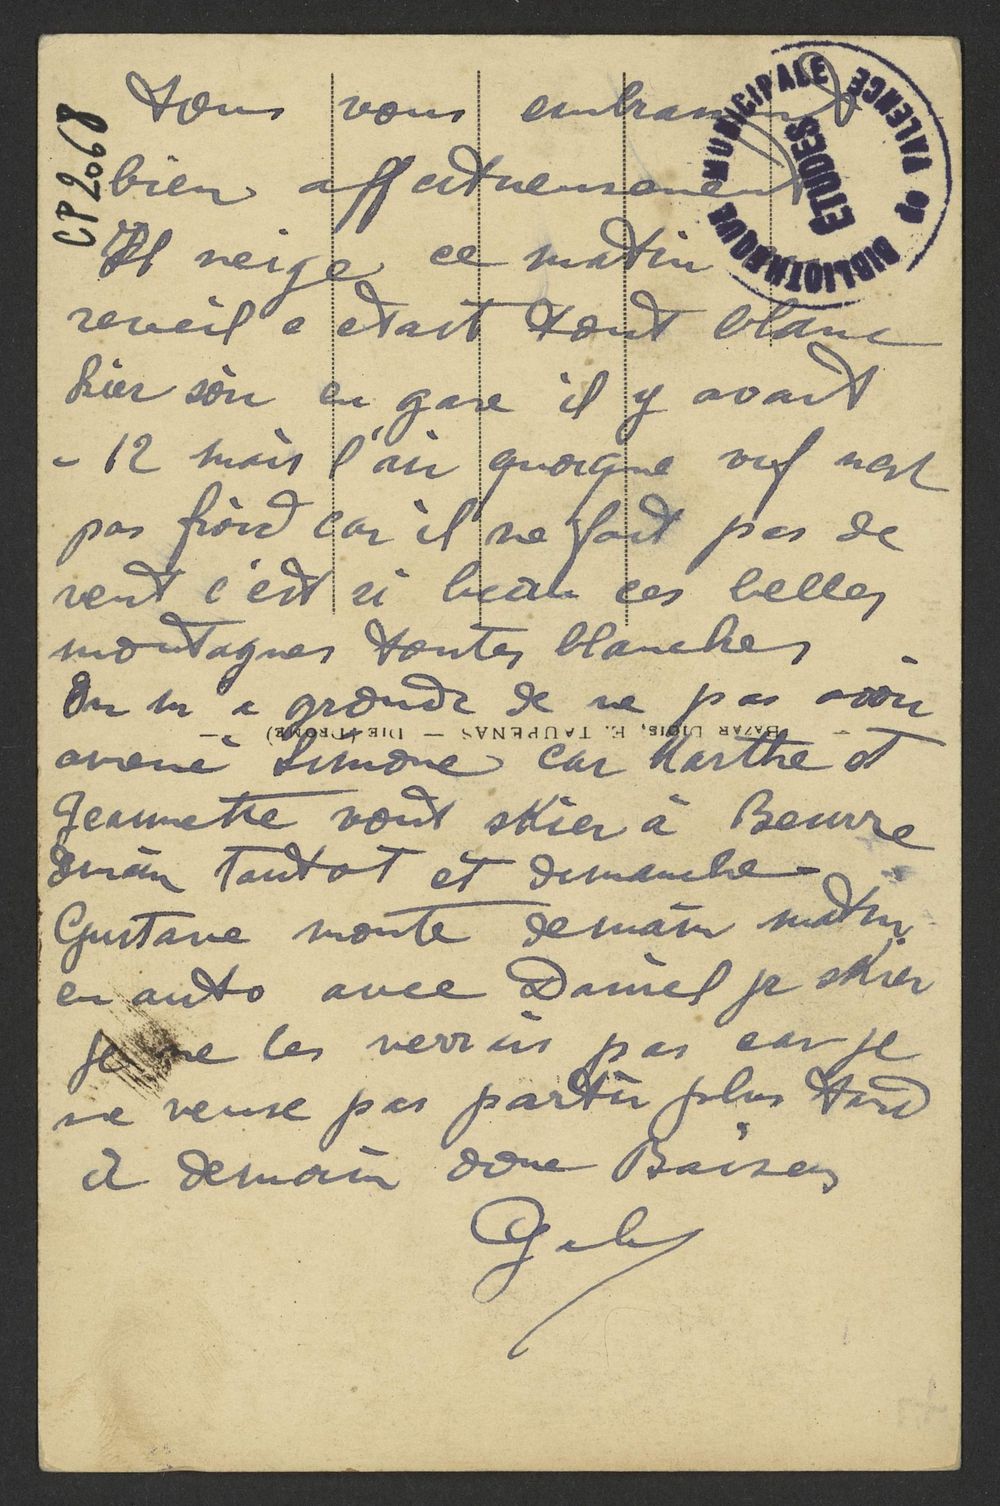 CP2068
BIBLIOTHEQUE MUNICIPALE
de VALENCE
ETUDES
tous vous embrassent
bien affectueusement
Il neige ce matin
reveil c etait tout blanc
hier soir en gare il y avait
- 12 mais l'air quoique vif nest
pas froid car il ne fait pas de
vent c'est si beau ces belles
montagnes toutes blanches
On m a grondé de ne pas avoir
amené Simone car Marthe et
BAZAR DIOIS, E. TAUPENAS — DIE (DROME)
Jeannette vont skier à Beurre
demain tantot et dimanche -
Gustave monte demain matin
en auto avec Daniel skier
je ne les verrais pas car je
ne veux pas partir plus tard
à demain donc Baisers